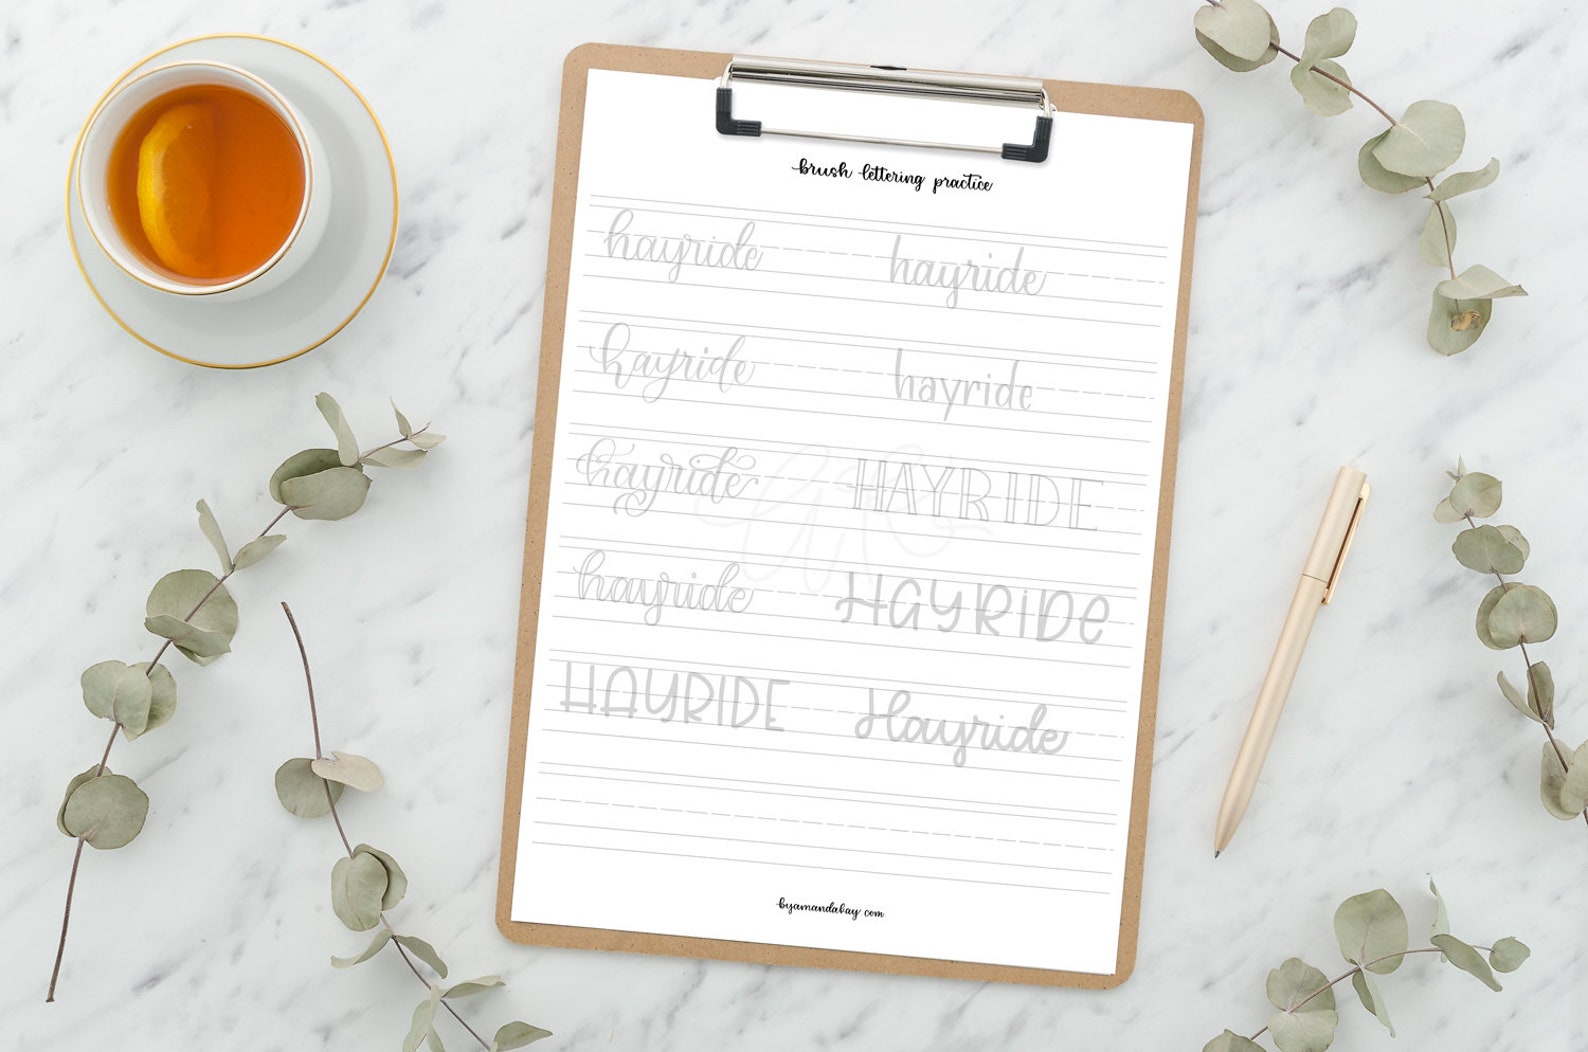 brush lettering practice
hayride hayride
hayride hayride
hayride HAYRIDE
hayride HAYRIDe
HAYRIDE Hayride
byamandakay com